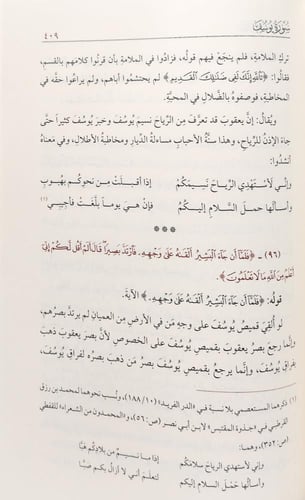 سُورَةُ يُوسُفَ
٤٠٩
تركِ الملامةِ، فلم ينجَعْ فيهم قولُه، فزادُوا في الملامةِ بأن قرنُوا كلامَهم بالقسمِ،
فقالُوا: ﴿تَاللَّهِ إِنَّكَ لَفِى ضَلَالِكَ الْقَدِيمِ﴾ لم يحتشمُوا أباهم، ولم يراعُوا حقَّه في
المخاطبةِ، فوصفوهُ بالضَّلالِ في المحبَّةِ.
ويُقالُ: إنَّ يعقوبَ قد تعرَّفَ مِن الرِّياحِ نسيمَ يوسفَ وخبرَ يوسفَ كثيراً حتَّى
جاءَ الإذنُ للرِّياحِ، وهذا سنَّةُ الأحبابِ مساءلةُ الدِّيارِ ومخاطبةُ الأطلالِ، وفي معناهُ
أنشدُوا:
وإنِّي لأستهدِي الرياحَ نسيمَكُم إذا أقبلَتْ مِن نحوِكُم بهُبوبِ
وأسألُها حملَ السَّلامِ إليكُم فإنْ هيَ يوماً بلَّغَتْ فأجيبِي (١)
***
(٩٦) - ﴿فَلَمَّا أَن جَاءَ الْبَشِيرُ أَلْقَاهُ عَلَى وَجْهِهِ فَارْتَدَّ بَصِيرًا قَالَ أَلَمْ أَقُل لَّكُمْ إِنِّي
أَعْلَمُ مِنَ اللَّهِ مَا لَا تَعْلَمُونَ﴾.
قوله: ﴿فَلَمَّا أَن جَاءَ الْبَشِيرُ أَلْقَاهُ عَلَى وَجْهِهِ﴾ الآيةَ.
لو أُلقِيَ قميصُ يُوسُفَ على وجهِ مَن في الأرضِ مِن العميانِ لم يرتدَّ بصرُهم،
وإنَّما رجعَ بصرُ يعقوبَ بقميصِ يُوسُفَ على الخصوصِ لأنَّ بصرَ يعقوبَ ذهبَ
بفراقِ يُوسُفَ، وإنَّما يرجعُ بقميصِ يُوسُفَ بصرُ مَن ذهبَ بصرُه لفراقِ يُوسُفَ.
(١) ذكرهما المستعصمي بلا نسبة في «الدر الفريد» (١٨٨/١٠)، ونُسب نحوهما لمحمد بن رزق
القرطبي في «جذوة المقتبس» لابن أبي نصر (ص:٥٦)، و«المحمدون من الشعراء» للقفطي
(ص:٣٥٢)، وهما:
وإني لأستهدي الرياح سلامكم إذا ما نسيم من بلادكم هبَّا
وأسألها حمل السلام إليكم لتعلم أني لا أزال بكم صبَّا